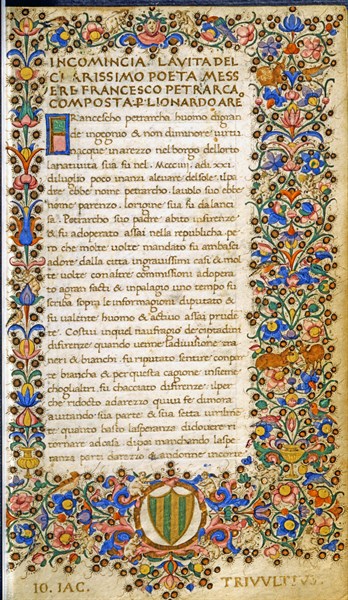 INCOMINCIA LAVITA DEL
CLARISSIMO POETA MESS
ERE FRANCESCO PETRARCA
COMPOSTA P LIONARDO ARE
FRancescho petrarcha huomo digran
de ingegnio et non diminore uirtu
nacque inarezzo nelborgo dellorto
lanatiuita sua fu nel Mccciiii adi xxi
diluglio poco inanzi aleuare delsole ilpa
dre ebbe nome petrarcho lauolo suo ebbe
nome parenzo lorigine sua fu dalanci
sa Petrarcho suo padre abito infirenze
et fu adoperato assai nella republicha pe
ro che molte uolte mandato fu ambasci
adore dalla citta ingrauissimi casi et mol
te uolte conaltre commissioni adopera
to agran facti et inpalagio uno tempo fu
scriba sopra le informagioni diputato et
fu ualente huomo et actiuo assai pruden
te Costui inquel naufragio de cittadini
difirenze quando uenne ladiuisione tra
neri et bianchi fu riputato sentire conpar
te biancha et per questa cagione insieme
cheglialtri fu chacciato difirenze ilper
che ridocto adarezzo quiui fe dimora
aiutando sua parte et sua setta uirilme
te quanto basto lasperanza didouere ri
tornare adcasa dipoi manchando laspe
ranza parti darezzo et andonne incorte
IO. IAC. TRIVULTIUS.